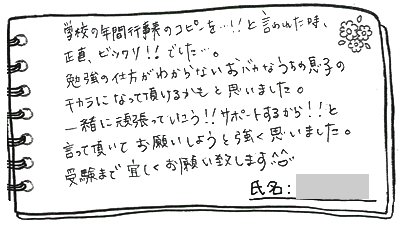 学校の年間行事のコピーを…!! と言われた時、
正直、ビックリ!! でした…。
勉強の仕方がわからないおバカなうちの息子の
チカラになって頂けるかもと思いました。
一緒に頑張っていこう!! サポートするから!! と
言って頂いて お願いしようと強く思いました。
受験まで 宜しくお願い致します^^
氏名: